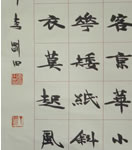 客京華小
花矮紙斜
衣莫起風